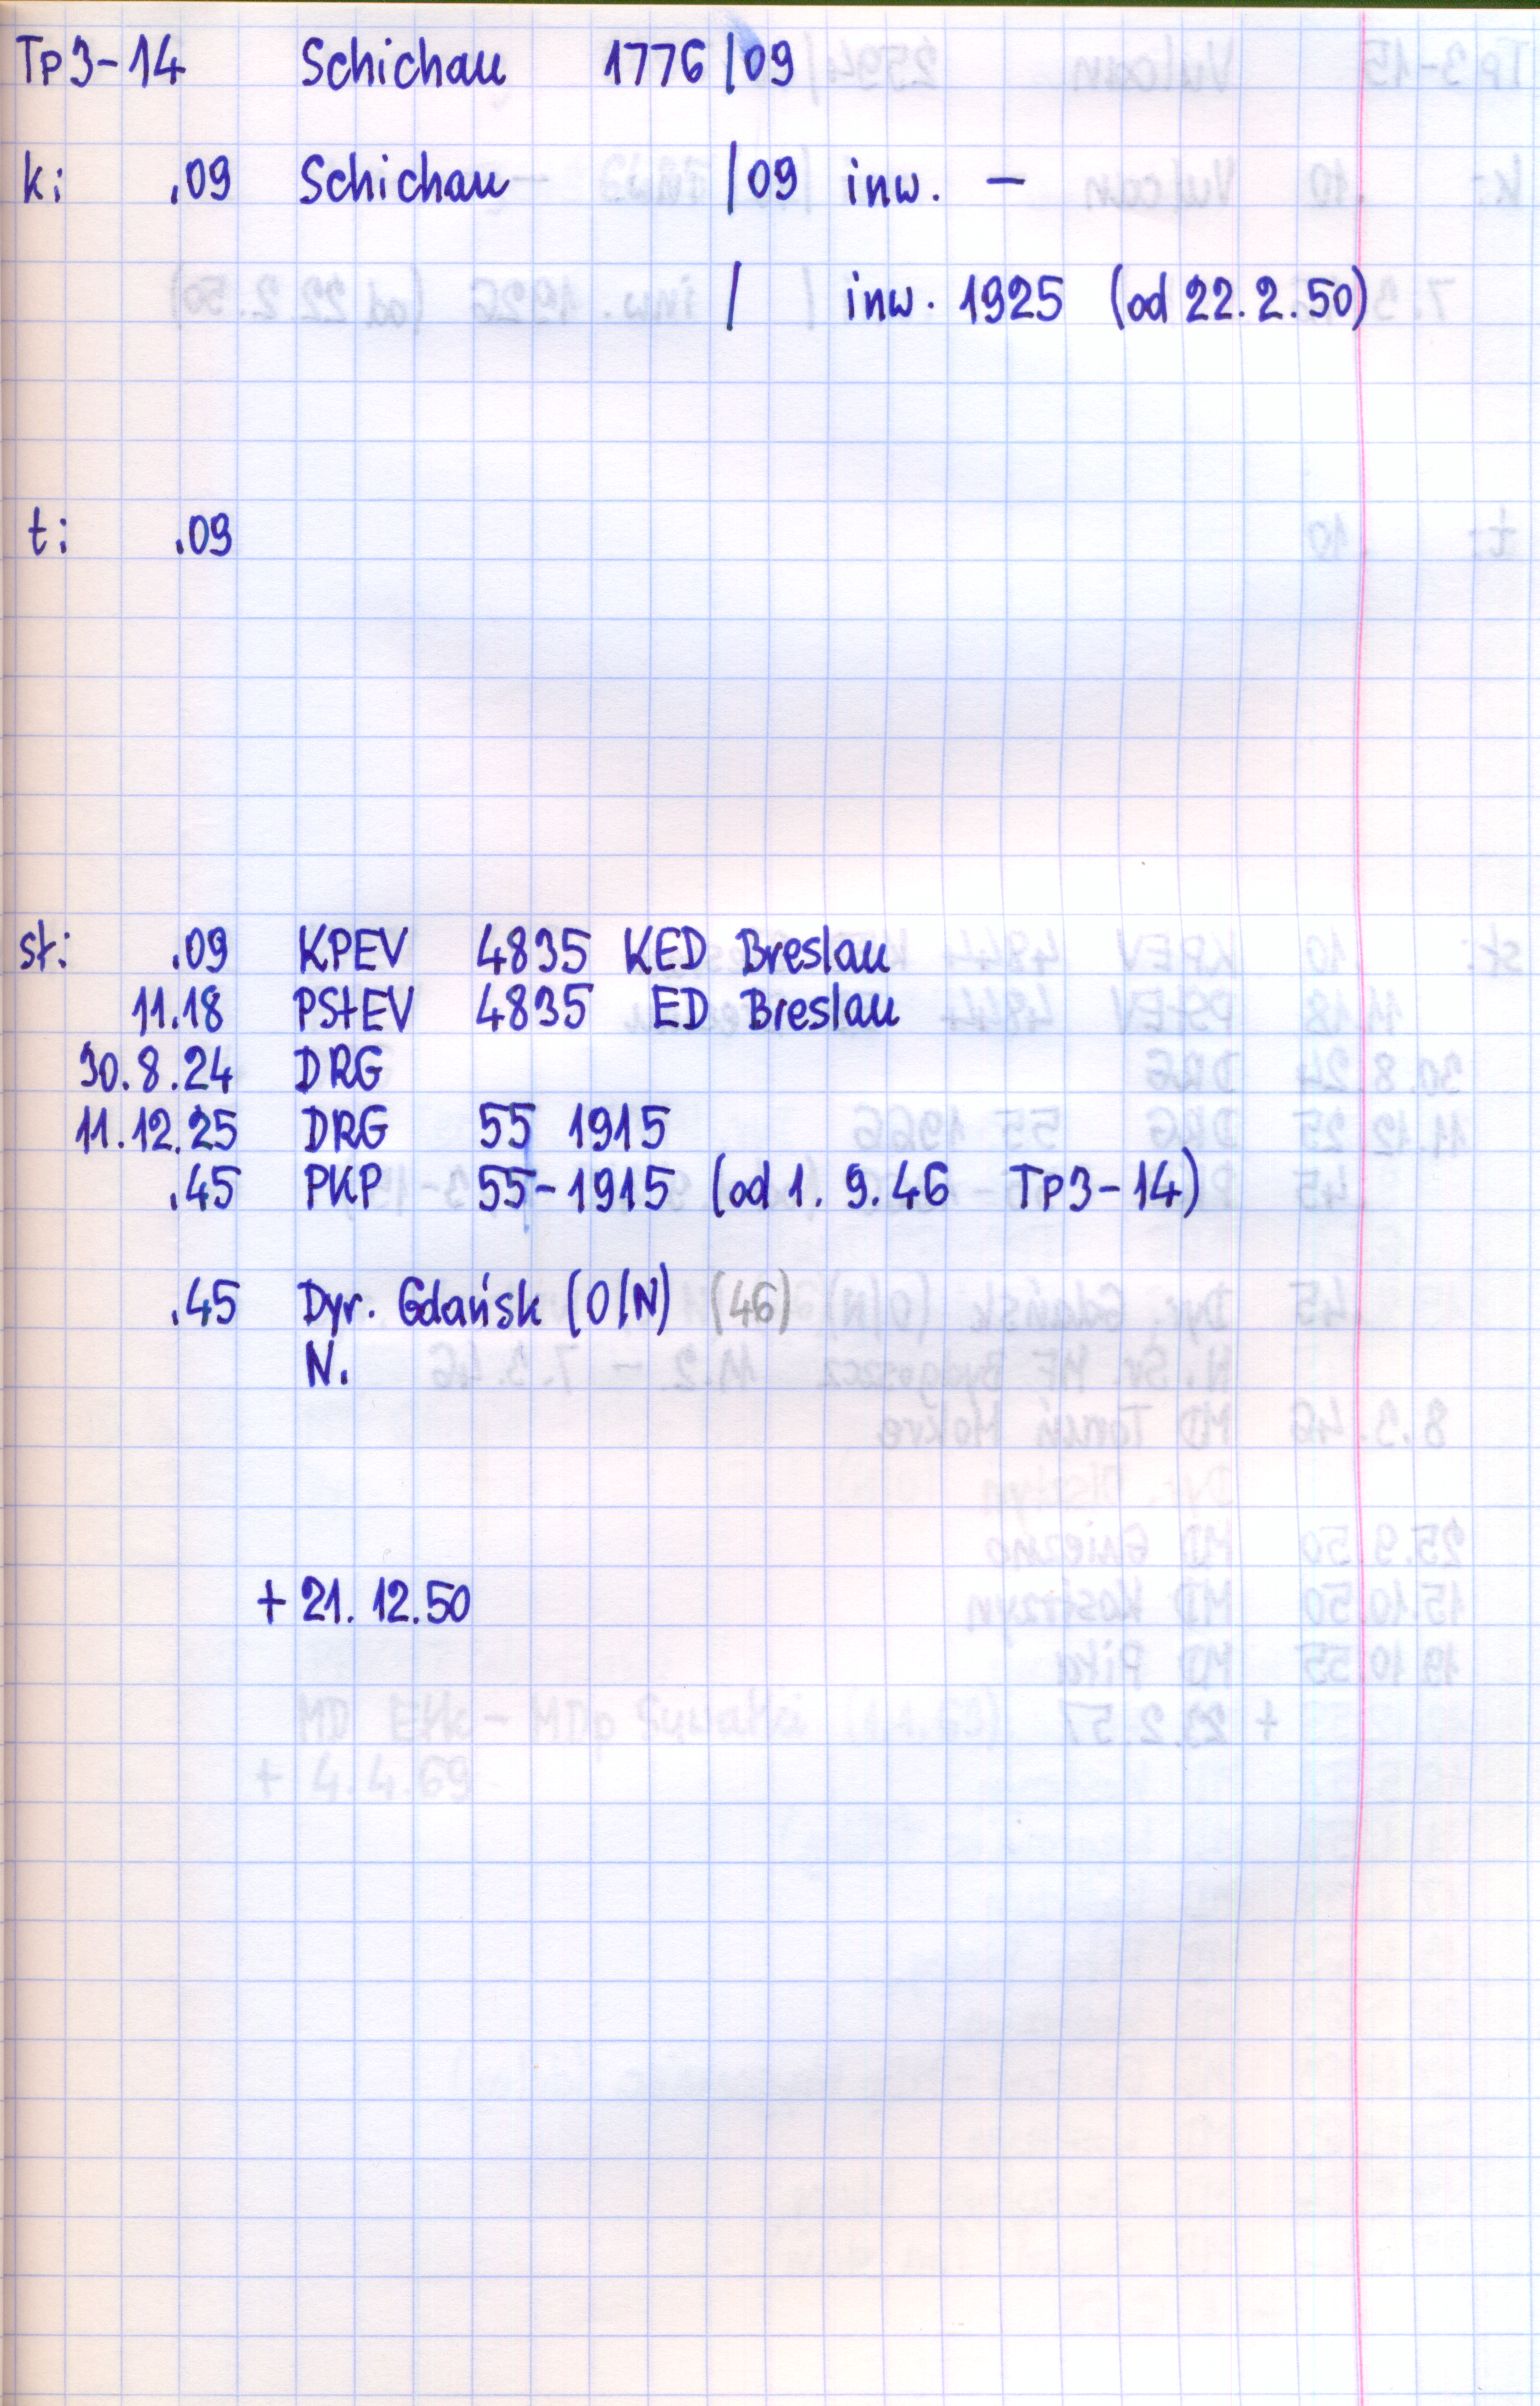 Tp3-14 Schichau 1776/09
k: .09 Schichau /09 inw. –
/ inw. 1925 (od 22.2.50)
t: .09
st: .09 KPEV 4835 KED Breslau
11.18 PStEV 4835 ED Breslau
30.8.24 DRG
11.12.25 DRG 55 1915
.45 PKP 55-1915 (od 1.9.46 Tp3-14)
.45 Dyr. Gdańsk (O/N) (46)
N.
+ 21.12.50
+ 4.4.69